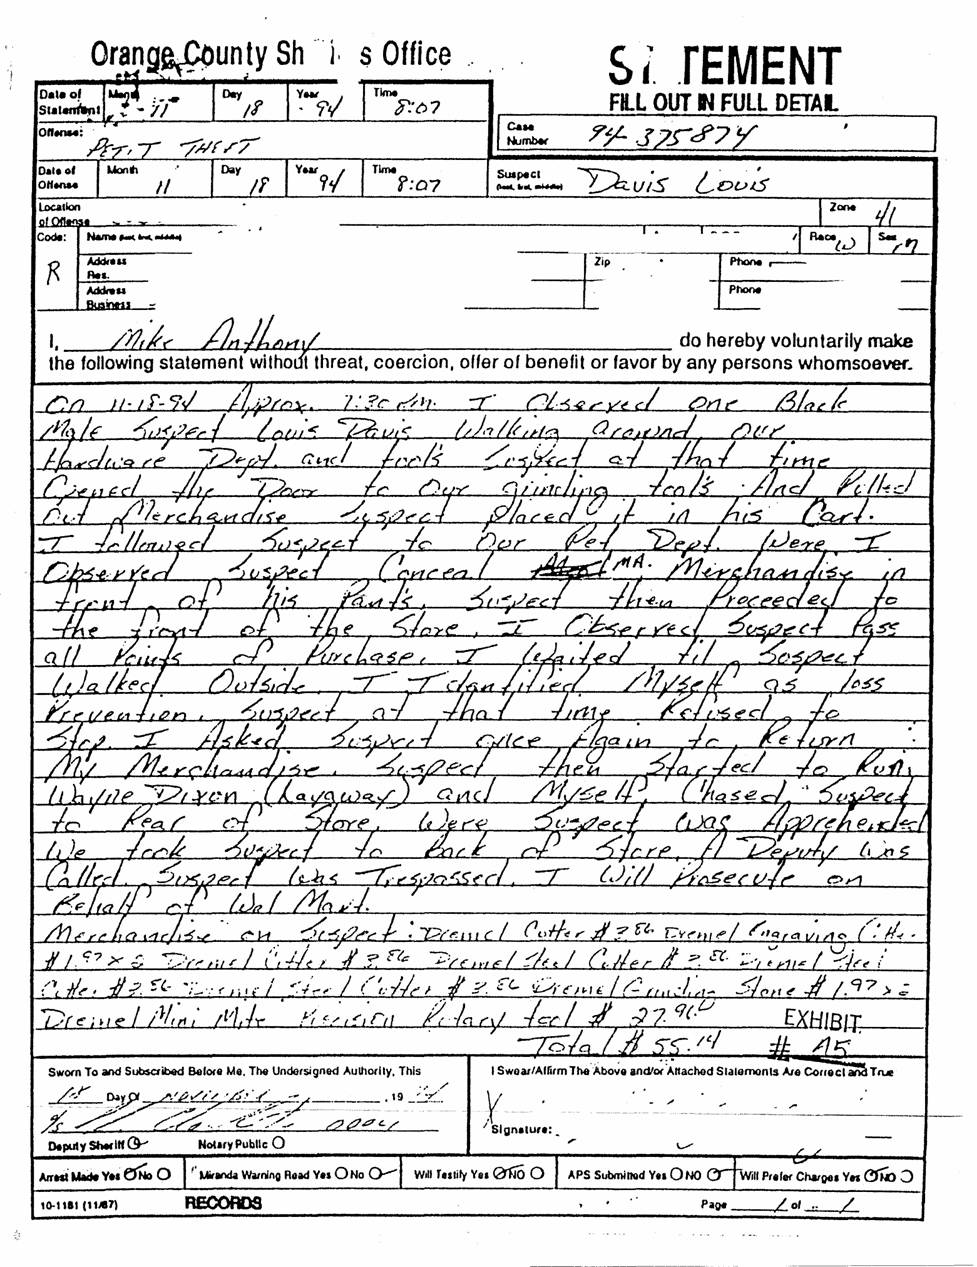 Orange County Sh i s Office
STATEMENT
FILL OUT IN FULL DETAIL
Date of Statement Month 11 Day 18 Year 94 Time 8:07
Case Number 94-375874
Offense: PETIT THEFT
Date of Offense Month 11 Day 18 Year 94 Time 8:07
Suspect (last, first, middle) Davis Louis
Location of Offense Zone 41
Code: R Name (last, first, middle) Race W Sex M
Address Res. Zip Phone
Address Business Phone
I, Mike Anthony do hereby voluntarily make
the following statement without threat, coercion, offer of benefit or favor by any persons whomsoever.
On 11-18-94 Approx. 7:30 pm. I Observed one Black
Male Suspect Louis Davis Walking around our
Hardware Dept. and tool's Suspect at that time
Opened the Door to Our grinding tool's And Pulled
Out Merchandise Suspect placed it in his Cart.
I followed Suspect to Our Pet Dept. Were I
Observed Suspect Conceal MA. Merchandise in
front of his Pant's. Suspect then Proceeded to
the front of the Store. I Observed Suspect Pass
all Points of Purchase. I Waited til Suspect
Walked Outside. I Idantified Myself as loss
Prevention. Suspect at that time Refused to
Stop. I Asked Suspect once Again to Return
My Merchandise. Suspect then Started to Run,
Wayne Dixon (Layaway) and Myself, Chased Suspect
to Rear of Store, Were Suspect was Apprehended
We took Suspect to Back of Store. A Deputy Was
Called. Suspect Was Trespassed. I Will Prosecute on
Behalf of Wal Mart.
Merchandise on Suspect: Dremel Cutter $3.86 Dremel Engraving Cutter
$1.97 x 2 Dremel Cutter $3.86 Dremel Steel Cutter $3.86 Dremel Steel
Cutter $3.86 Dremel Steel Cutter $3.86 Dremel Grinding Stone $1.97 x 2
Dremel Mini Mite Precision Rotary tool $27.96
EXHIBIT
Total $55.14 # A5
Sworn To and Subscribed Before Me, The Undersigned Authority, This
I Swear/Affirm The Above and/or Attached Statements Are Correct and True
Day Of November, 19 94
X
Signature:
Deputy Sheriff Notary Public
Arrest Made Yes No Miranda Warning Read Yes No Will Testify Yes NO APS Submitted Yes NO Will Prefer Charges Yes NO
10-1181 (11/87) RECORDS Page 1 of 1